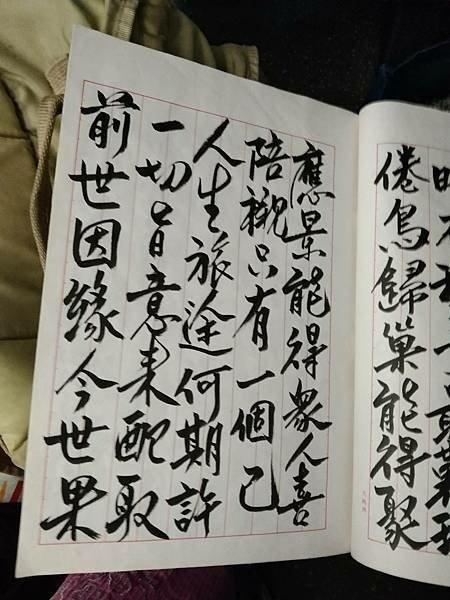 倦鳥歸巢能得聚
應景能得眾人喜
陪襯只有一個己
人生旅途何期許
一切旨意来配取
前世因緣今世果